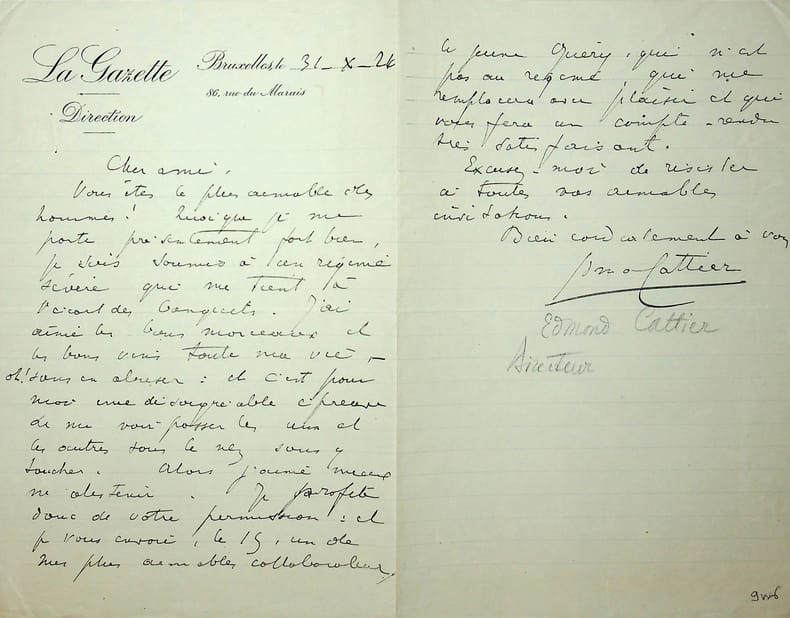 La Gazette
Direction
Bruxelles, le 31 - X - 26
86, rue du Marais
Cher ami,
Vous êtes le plus aimable des
hommes ! Quoique je me
porte présentement fort bien,
je suis soumis à un régime
sévère qui me tient à
l'écart des banquets. J'ai
aimé les bons morceaux et
les bons vins toute ma vie, —
oh! sans en abuser : et c'est pour
moi une désagréable épreuve
de me voir passer les uns et
les autres sous le nez sans y
toucher. Alors j'aime mieux
m'abstenir. Je profite
donc de votre permission : et
je vous envoie, le 15, un de
mes plus aimables collaborateurs,
le jeune Quéry, qui n'est
pas au régime, qui me
remplacera avec plaisir et qui
vous fera un compte-rendu
très satisfaisant.
Excusez-moi de résister
à toutes vos aimables
invitations.
Bien cordialement à vous
Edmond Cattier
Directeur